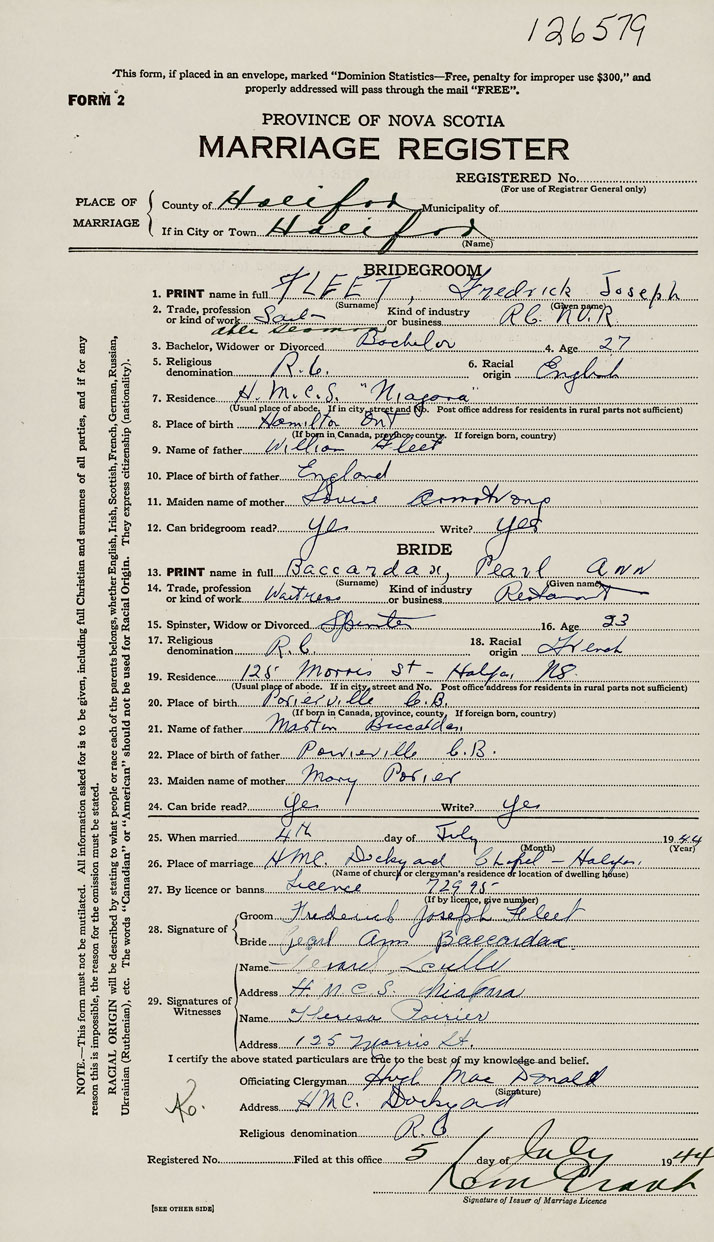 126579
This form, if placed in an envelope, marked “Dominion Statistics—Free, penalty for improper use $300,” and
properly addressed will pass through the mail “FREE”.
FORM 2
PROVINCE OF NOVA SCOTIA
MARRIAGE REGISTER
REGISTERED No.
(For use of Registrar General only)
PLACE OF MARRIAGE
County of Halifax Municipality of
If in City or Town Halifax
(Name)
BRIDEGROOM
1. PRINT name in full FLEET, Fredrick Joseph
(Surname) (Given name)
2. Trade, profession or kind of work able seaman Kind of industry or business R.C.N.V.R
3. Bachelor, Widower or Divorced Bachelor 4. Age 27
5. Religious denomination R.C. 6. Racial origin English
7. Residence H.M.C.S. "Niagara"
(Usual place of abode. If in city, street and No. Post office address for residents in rural parts not sufficient)
8. Place of birth Hamilton Ont
(If born in Canada, province, county. If foreign born, country)
9. Name of father William Fleet
10. Place of birth of father England
11. Maiden name of mother Louise Armstrong
12. Can bridegroom read? yes Write? yes
BRIDE
13. PRINT name in full Baccardax, Pearl ANN
(Surname) (Given name)
14. Trade, profession or kind of work Waitress Kind of industry or business Restaurant
15. Spinster, Widow or Divorced Spinster 16. Age 23
17. Religious denomination R.C. 18. Racial origin French
19. Residence 125 Morris St - Halifax NS.
(Usual place of abode. If in city, street and No. Post office address for residents in rural parts not sufficient)
20. Place of birth Poirierville C.B.
(If born in Canada, province, county, If foreign born, country)
21. Name of father Martin Baccardax
22. Place of birth of father Poirierville C.B.
23. Maiden name of mother Mary Porier
24. Can bride read? yes Write? yes
25. When married 4th day of July 1944
(Month) (Year)
26. Place of marriage HMC. Dockyard Chapel - Halifax.
(Name of church or clergyman's residence or location of dwelling house)
27. By licence or banns Licence 72995
(If by licence, give number)
28. Signature of
Groom Frederick Joseph Fleet
Bride Pearl Ann Baccardax
29. Signatures of Witnesses
Name Scully
Address H.M.C.S. Niagara
Name Theresa Poirier
Address 125 Morris St.
I certify the above stated particulars are true to the best of my knowledge and belief.
Officiating Clergyman Hugh MacDonald
(Signature)
Address HMC. Dockyard
Religious denomination R.C
Registered No. Filed at this office 5 day of July 1944
Signature of Issuer of Marriage Licence
[SEE OTHER SIDE]
NOTE.—This form must not be mutilated. All information asked for is to be given, including full Christian and surnames of all parties, and if for any
reason this is impossible, the reason for the omission must be stated.
RACIAL ORIGIN will be described by stating to what people or race each of the parents belongs, whether English, Irish, Scottish, French, German, Russian,
Ukrainian (Ruthenian), etc. The words “Canadian” or “American” should not be used for Racial Origin. They express citizenship (nationality).